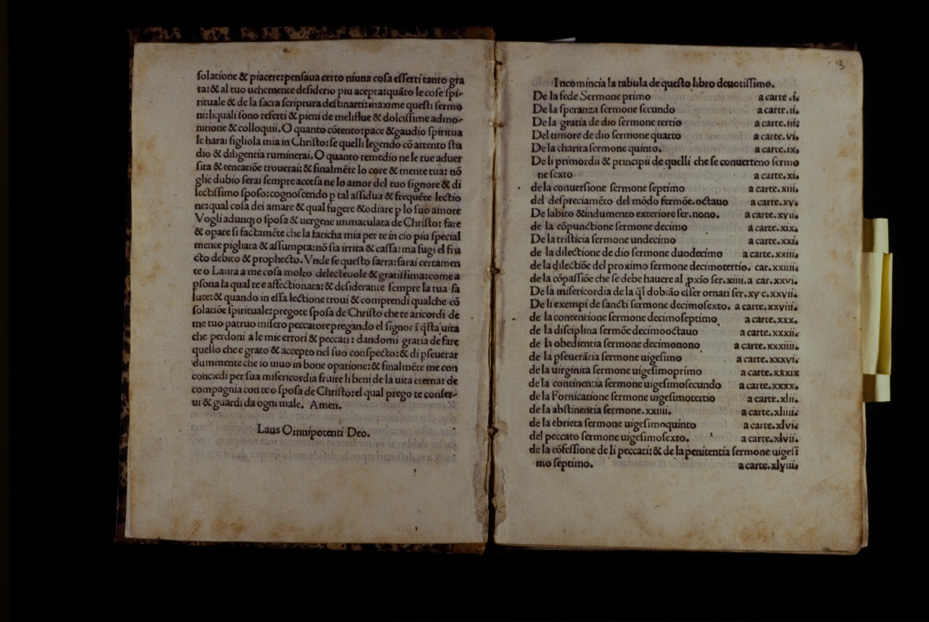 solatione & piacere: pensaua certo niuna cosa esserti tanto gra
ta: & al tuo uehemente desiderio piu acepta: quāto le cose spi-
rituale & de la sacra scriptura destinarti: maxime questi sermo
ni: liquali sono referti & pieni de meliflue & dolcissime admo-
nitione & colloquii. O quanto cōtento: pace & gaudio spiritua
le harai figliola mia in Christo: se quelli legendo cō attento stu
dio & diligentia ruminerai. O quanto remedio ne le tue aduer
sita & tentatiōe trouerai: & finalmēte lo core & mente tua: nō
glie dubio serai sempre accesa ne lo amor del tuo signore & di
lectissimo sposo: cognoscendo p tal assidua & frequēte lectio
ne: qual cosa dei amare & qual fugere & odiare p lo suo amore
Vogli adunq o sposa & uergene immaculata de Christo: fare
& opare si factamēte che la faticha mia per te in cio piu special
mente pigliata & assumpta: nō sia irrita & cassa: ma fugi el fru
cto debito & prophecto. Vnde se questo farra: farai certamen
te o Laura a me cosa molto delecteuole & gratissima: come a
psona la qual te e affectionata: & desiderante sempre la tua sa
lute: & quando in essa lectione troui & comprendi qualche cō
solatiōe spirituale: pregote sposa de Christo che te aricordi de
me tuo patruo misero peccatore pregando el signor ī q̄sta uita
che perdoni a le mie errori & peccati: dandomi gratia de fare
quello che e grato & accepto nel suo conspecto: & di pseuerar
dummente che io uiuo in bone opatione: & finalmēte me con
conciedi per sua misericordia fruire li beni de la uita eterna: de
compagnia con te o sposa de Christo: el qual prego te conser-
ui & guardi da ogni male. Amen.
Laus Omnipotenti Deo.
3
Incomincia la tabula de questo libro deuotissimo.
De la fede Sermone primo a carte .i.
De la speranza sermone secundo a carte. ii.
De la gratia de dio sermone tertio a carte. iiii
Del timore de dio sermone quarto a carte. vi.
De la charita sermone quinto. a carte. ix.
De li primordii & principii de quelli che se conuerteno sermo
ne sexto a carte. xi.
de la conuersione sermone septimo a carte. xiii.
del despreciamēto del mōdo sermōe. octauo a carte. xv.
De labito & indumento exteriore ser. nono. a carte. xvii.
de la cōpunctione sermone decimo a carte. xix.
De la tristicia sermone undecimo a carte. xxi.
de la dilectione de dio sermone duodecimo a carte. xxiii.
de la dilectiōe del proximo sermone decimotertio. car. xxiiii.
de la cōpassiōe che se debe hauere al pxio ser. xiiii. a car. xxvi.
De la misericordia de la q̄l dobiāo esser ornati ser. xv c. xxvii.
De li exempi de sancti sermone decimosexto. a carte. xxviii.
de la contentione sermone decimoseptimo a carte. xxx.
de la disciplina sermōe decimooctauo a carte. xxxii.
de la obedientia sermone decimonono a carte. xxxiiii.
de la pseuerātia sermone uigesimo a carte. xxxvi.
de la uirginita sermone uigesimoprimo a carte. xxxix
de la continentia sermone uigesimosecundo a carte. xxxx.
de la Fornicatione sermone uigesimotertio a carte. xlii.
de la abstinentia sermone. xxiiii. a carte. xliiii.
de la ebrieta sermone uigesimoquinto a carte. xlvi.
del peccato sermone uigesimosexto. a carte. xlvii.
de la cōfessione de li peccati: & de la penitentia sermone uigesi
mo septimo. a carte. xlviii.